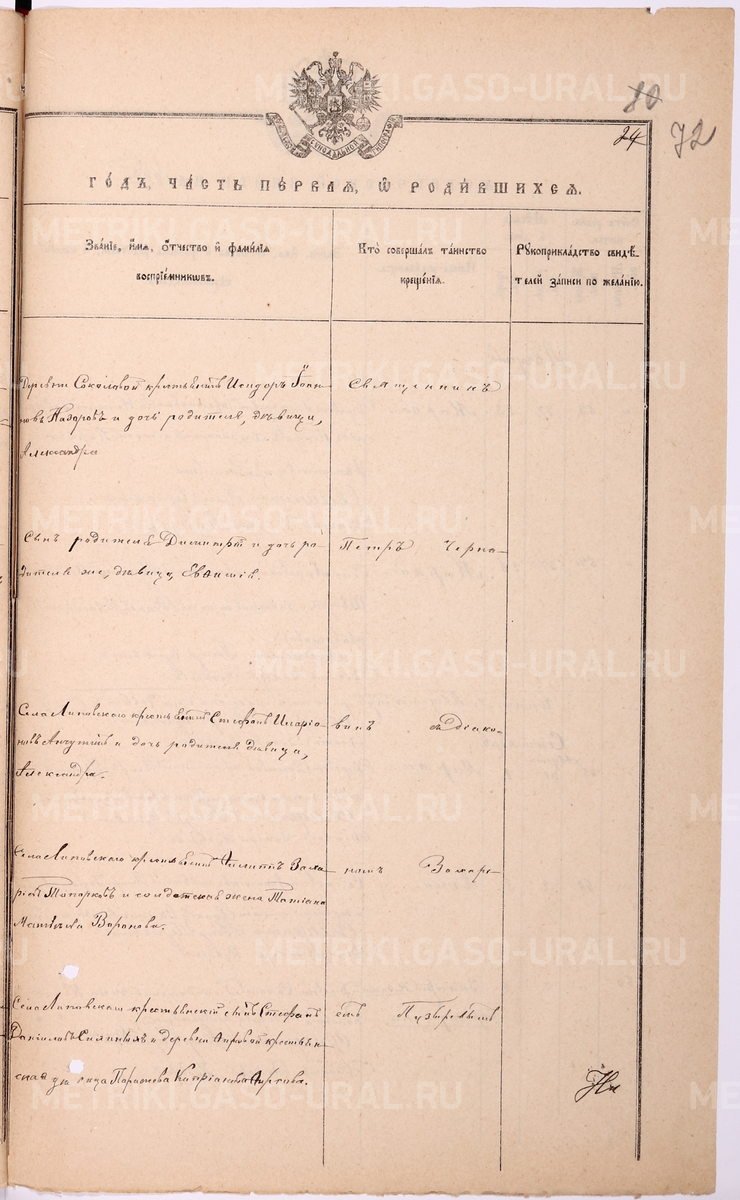 METRIKI.GASO-URAL.RU
80
24
72
СѴНОДАЛЬНОЙ
ГОДЪ, ЧАСТЬ ПЕРВАЯ, Ѡ РОДИВШИХСЯ.
Званіе, имя, отчество и фамилія
воспріемниковъ.
Кто совершалъ таинство
крещенія.
Рукоприкладство свидѣ-
телей записи по желанію.
Деревни Соколовой крестьянинъ Исидоръ Іоан-
новъ и дочь родителя, дѣвица,
Александра
Священникъ
Сынъ родителя Димитрій и дочь ро-
дителя же, дѣвица, Евѳимія.
Петръ Черно-
Села Липовскаго крестьянинъ Стефанъ Иларіо-
новъ и дочь родителя дѣвица,
Александра.
винъ съ Діако-
Села Липовскаго крестьянинъ Филиппъ Заха-
ріевъ Топорковъ и солдатская жена Татіана
Матвѣева Воронова.
номъ Захарі-
Села Липовскаго крестьянскій сынъ Стефанъ
Даніиловъ и деревни крестьян-
ская дѣвица Параскева Кипріанова
емъ Пузыревымъ